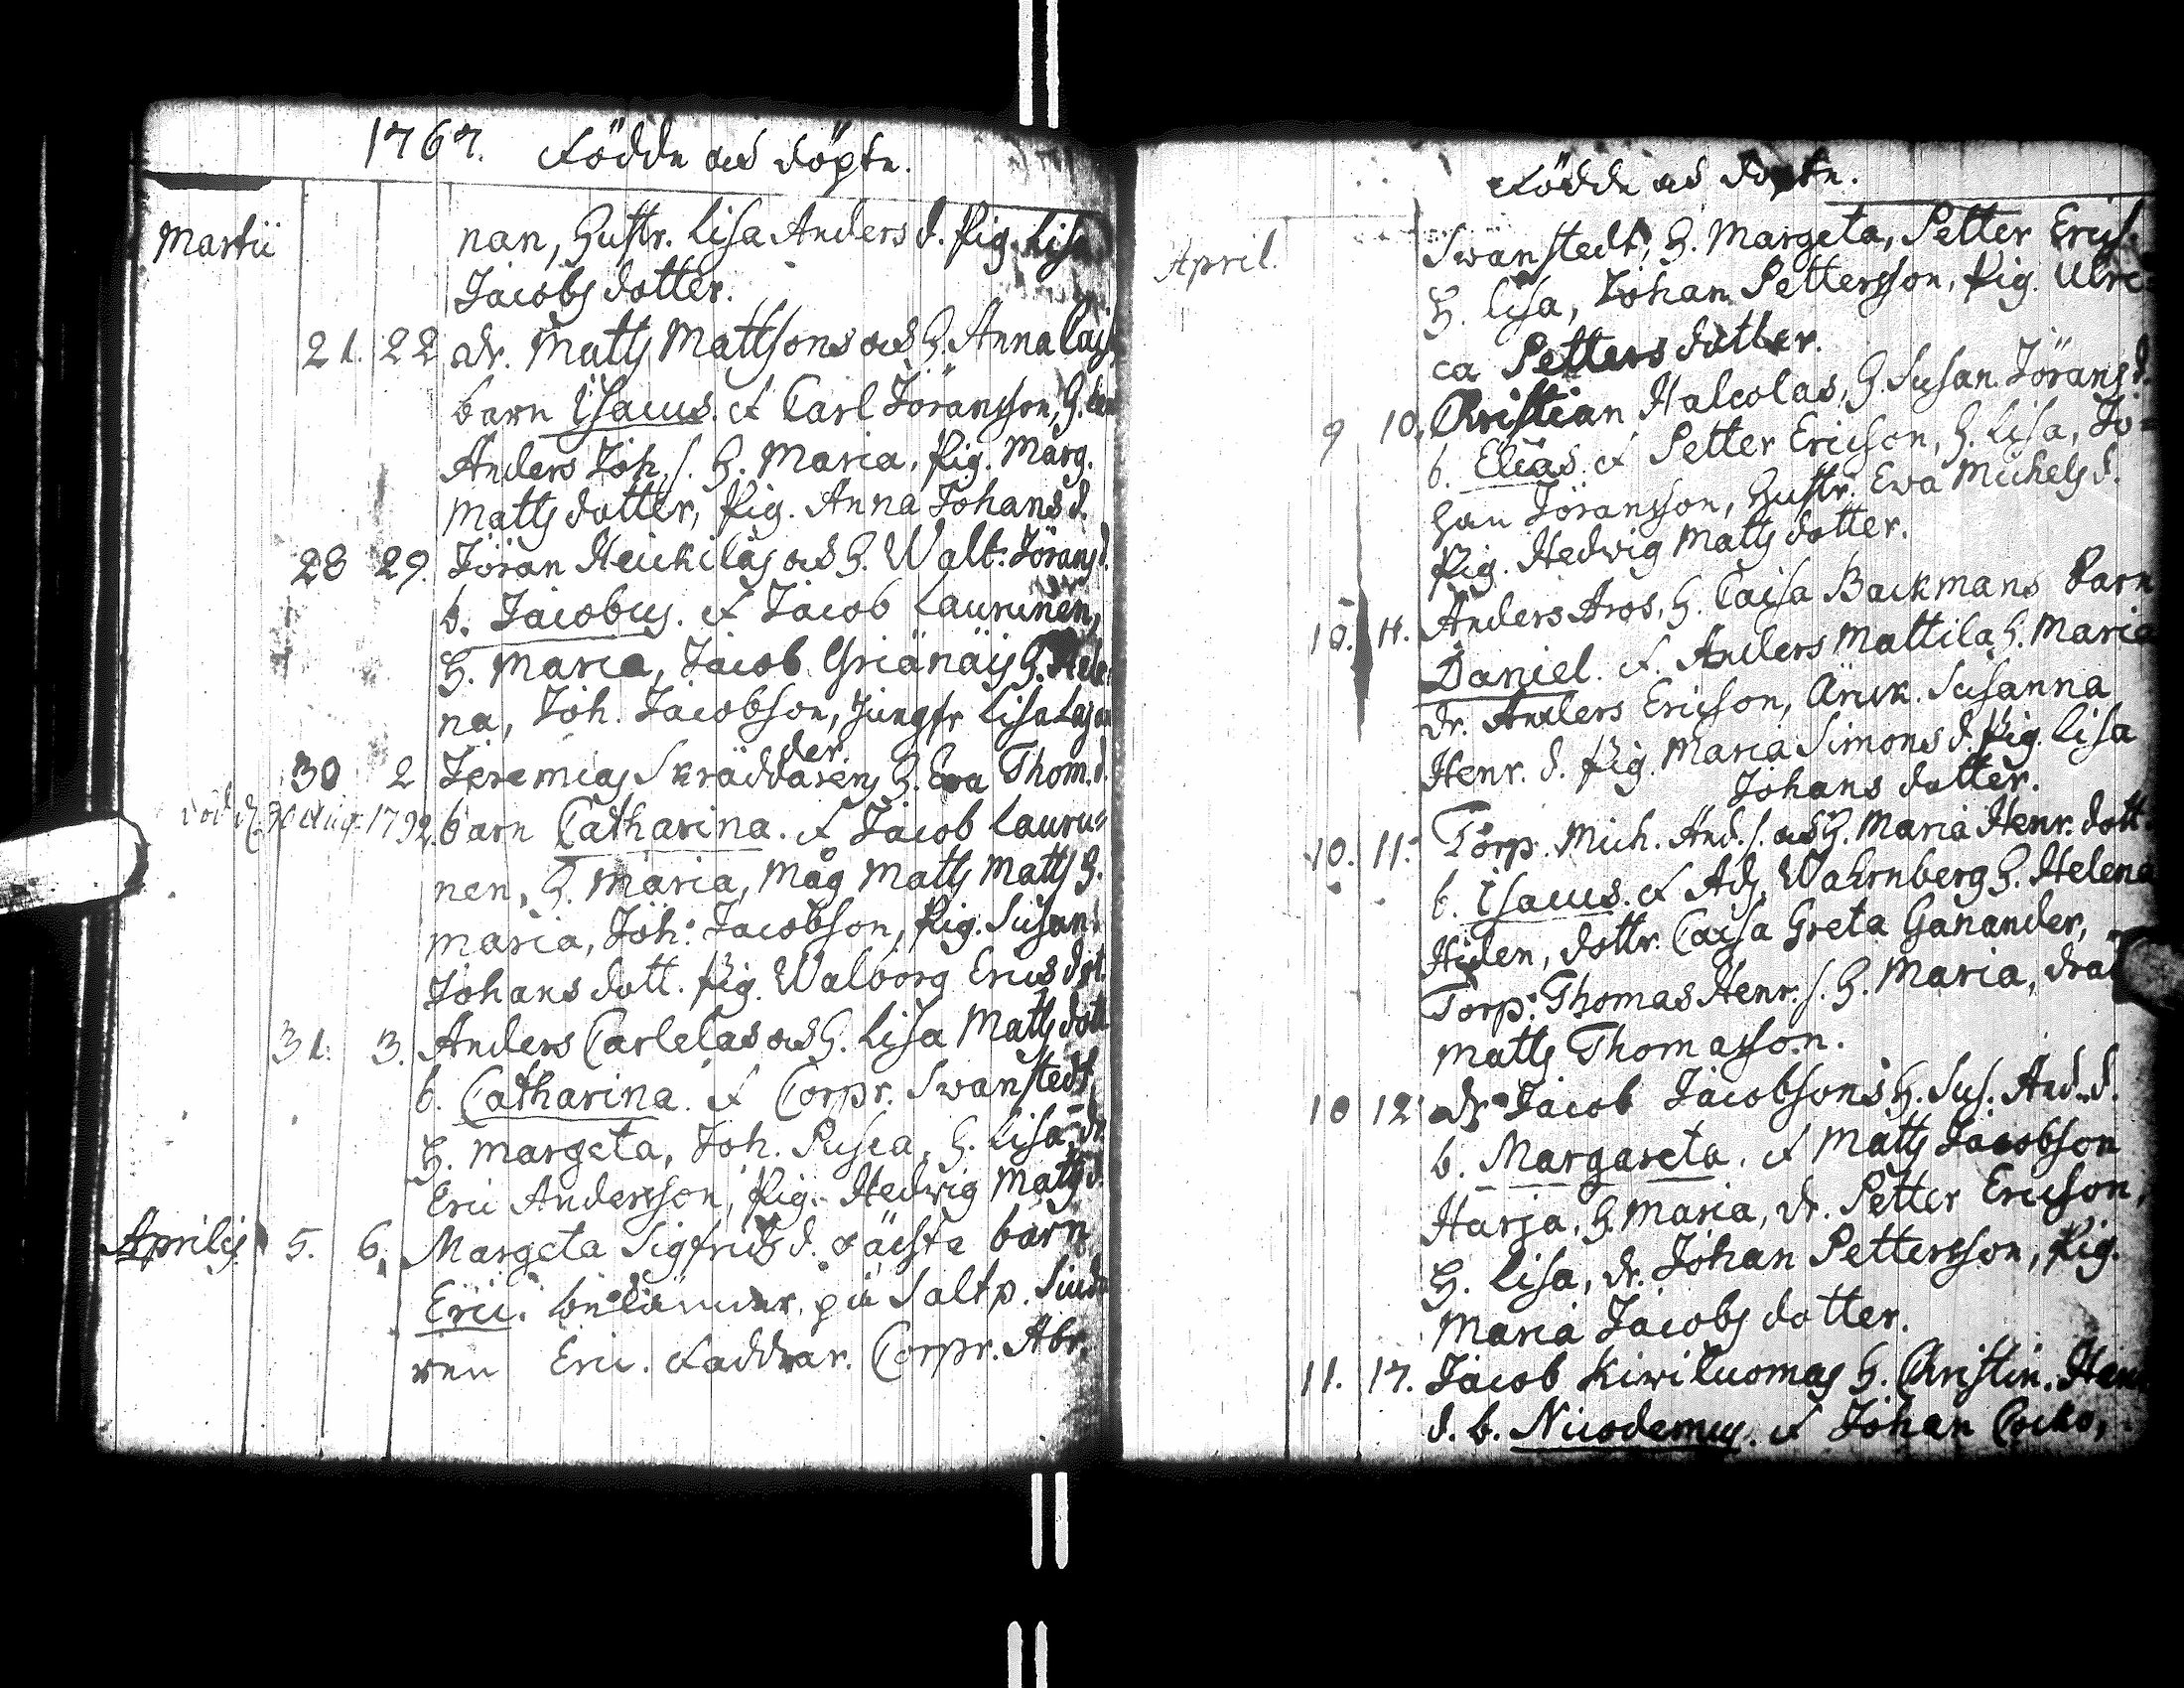 1767. Födde och döpte.
Martii nan, Hustr. Lisa Anders d. Pig. Lisa
Jacobs dotter.
21. 22 dr. Matts Mattsons och H. Anna Caisas
barn Isacus. F Carl Jöransson, H.
Anders Joh. s. H. Maria, Pig. Marg.
Matts dotter, Pig. Anna Johans d.
28 29. Jöran Heickiläs och H. Walb. Jörans d.
b. Jacobus. F Jacob Laurunen,
H. Maria, Jacob Griänäis H. Hele-
na, Joh. Jacobson, Jungfr Lisa
der
30 2 Jeremias Skräddarens H. Ewa Thom. d.
död d. 30 Aug. 1792 barn Catharina. F Jacob Lauru=
nen, H. Maria, Måg Matts Matts H.
Maria, Joh: Jacobson, Pig. Susan.
Johans dott. Pig. Walborg Erics dot.
31. 3. Anders Carlelas och H. Lisa Matts dott
b. Catharina. F Corpr. Swanstedt,
H. Margeta, Joh. Pusca, H. Lisa, dr
Eric Andersson, Pig. Hedwig Matts d.
Aprilis 5. 6. Margeta Sigfrids d. oächta barn
Eric. belämnar på Saltp.
ren Eric. Faddrar. Corpr. Abr.
Födde och döpte.
April. Swanstedt, H. Margeta, Petter Erics.
H. Lisa, Johan Pettersson, Pig. Ulri=
ca Petters dotter.
9 10. Christian Halcolas, H. Susan. Jörans d.
b. Elias. F Petter Ericson, H. Lisa, Jo=
han Jöransson, Hustr. Ewa Michels d.
Pig. Hedwig Matts dotter.
10. 11. Anders Aros, H. Caisa Backmans Barn
Daniel. F. Anders Mattila H. Maria
dr. Anders Ericson, Änck. Susanna
Henr. d. Pig. Maria Simons d. Pig. Lisa
Johans dotter.
10. 11. Torp. Mich. And. s. och H. Maria Henr. dott.
b. Isacus. F Adj. Wahrnberg H. Helena
Hiden, dottr. Caisa Greta Ganander,
Torp: Thomas Henr. s. H. Maria,
Matts Thomasson.
10 12. dr Jacob Jacobsons H. Sus. And. d.
b. Margareta. F Matts Jacobson
Harja, H. Maria, dr. Petter Ericson,
H. Lisa, dr. Johan Pettersson, Pig.
Maria Jacobs dotter.
11. 17. Jacob Kiwiluomas H. Christin. Henr.
d. b. Nicodemus. F Johan